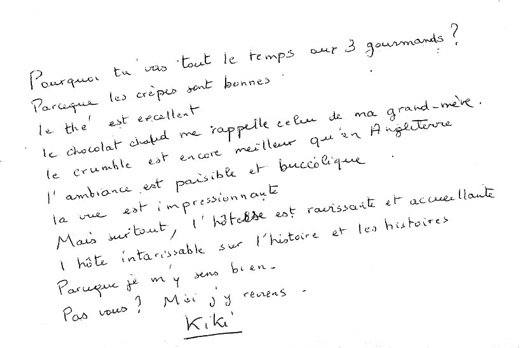 Pourquoi tu vas tout le temps aux 3 gourmands ?
Parceque les crêpes sont bonnes.
le thé est excellent
le chocolat chaud me rappelle celui de ma grand-mère.
le crumble est encore meilleur qu'en Angleterre
l'ambiance est paisible et buccolique.
la vue est impressionnante
Mais surtout, l'hôtesse est ravissante et accueillante
l hôte intarissable sur l'histoire et les histoires
Parceque je m'y sens bien.
Pas vous ? Moi j'y reviens.
Kiki